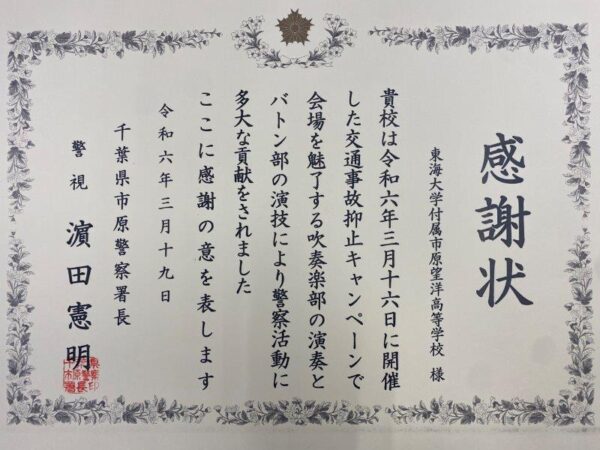 感謝状
東海大学付属市原望洋高等学校 様
貴校は令和六年三月十六日に開催
した交通事故抑止キャンペーンで
会場を魅了する吹奏楽部の演奏と
バトン部の演技により警察活動に
多大な貢献をされました
ここに感謝の意を表します
令和六年三月十九日
千葉県市原警察署長
警視 濵田憲明